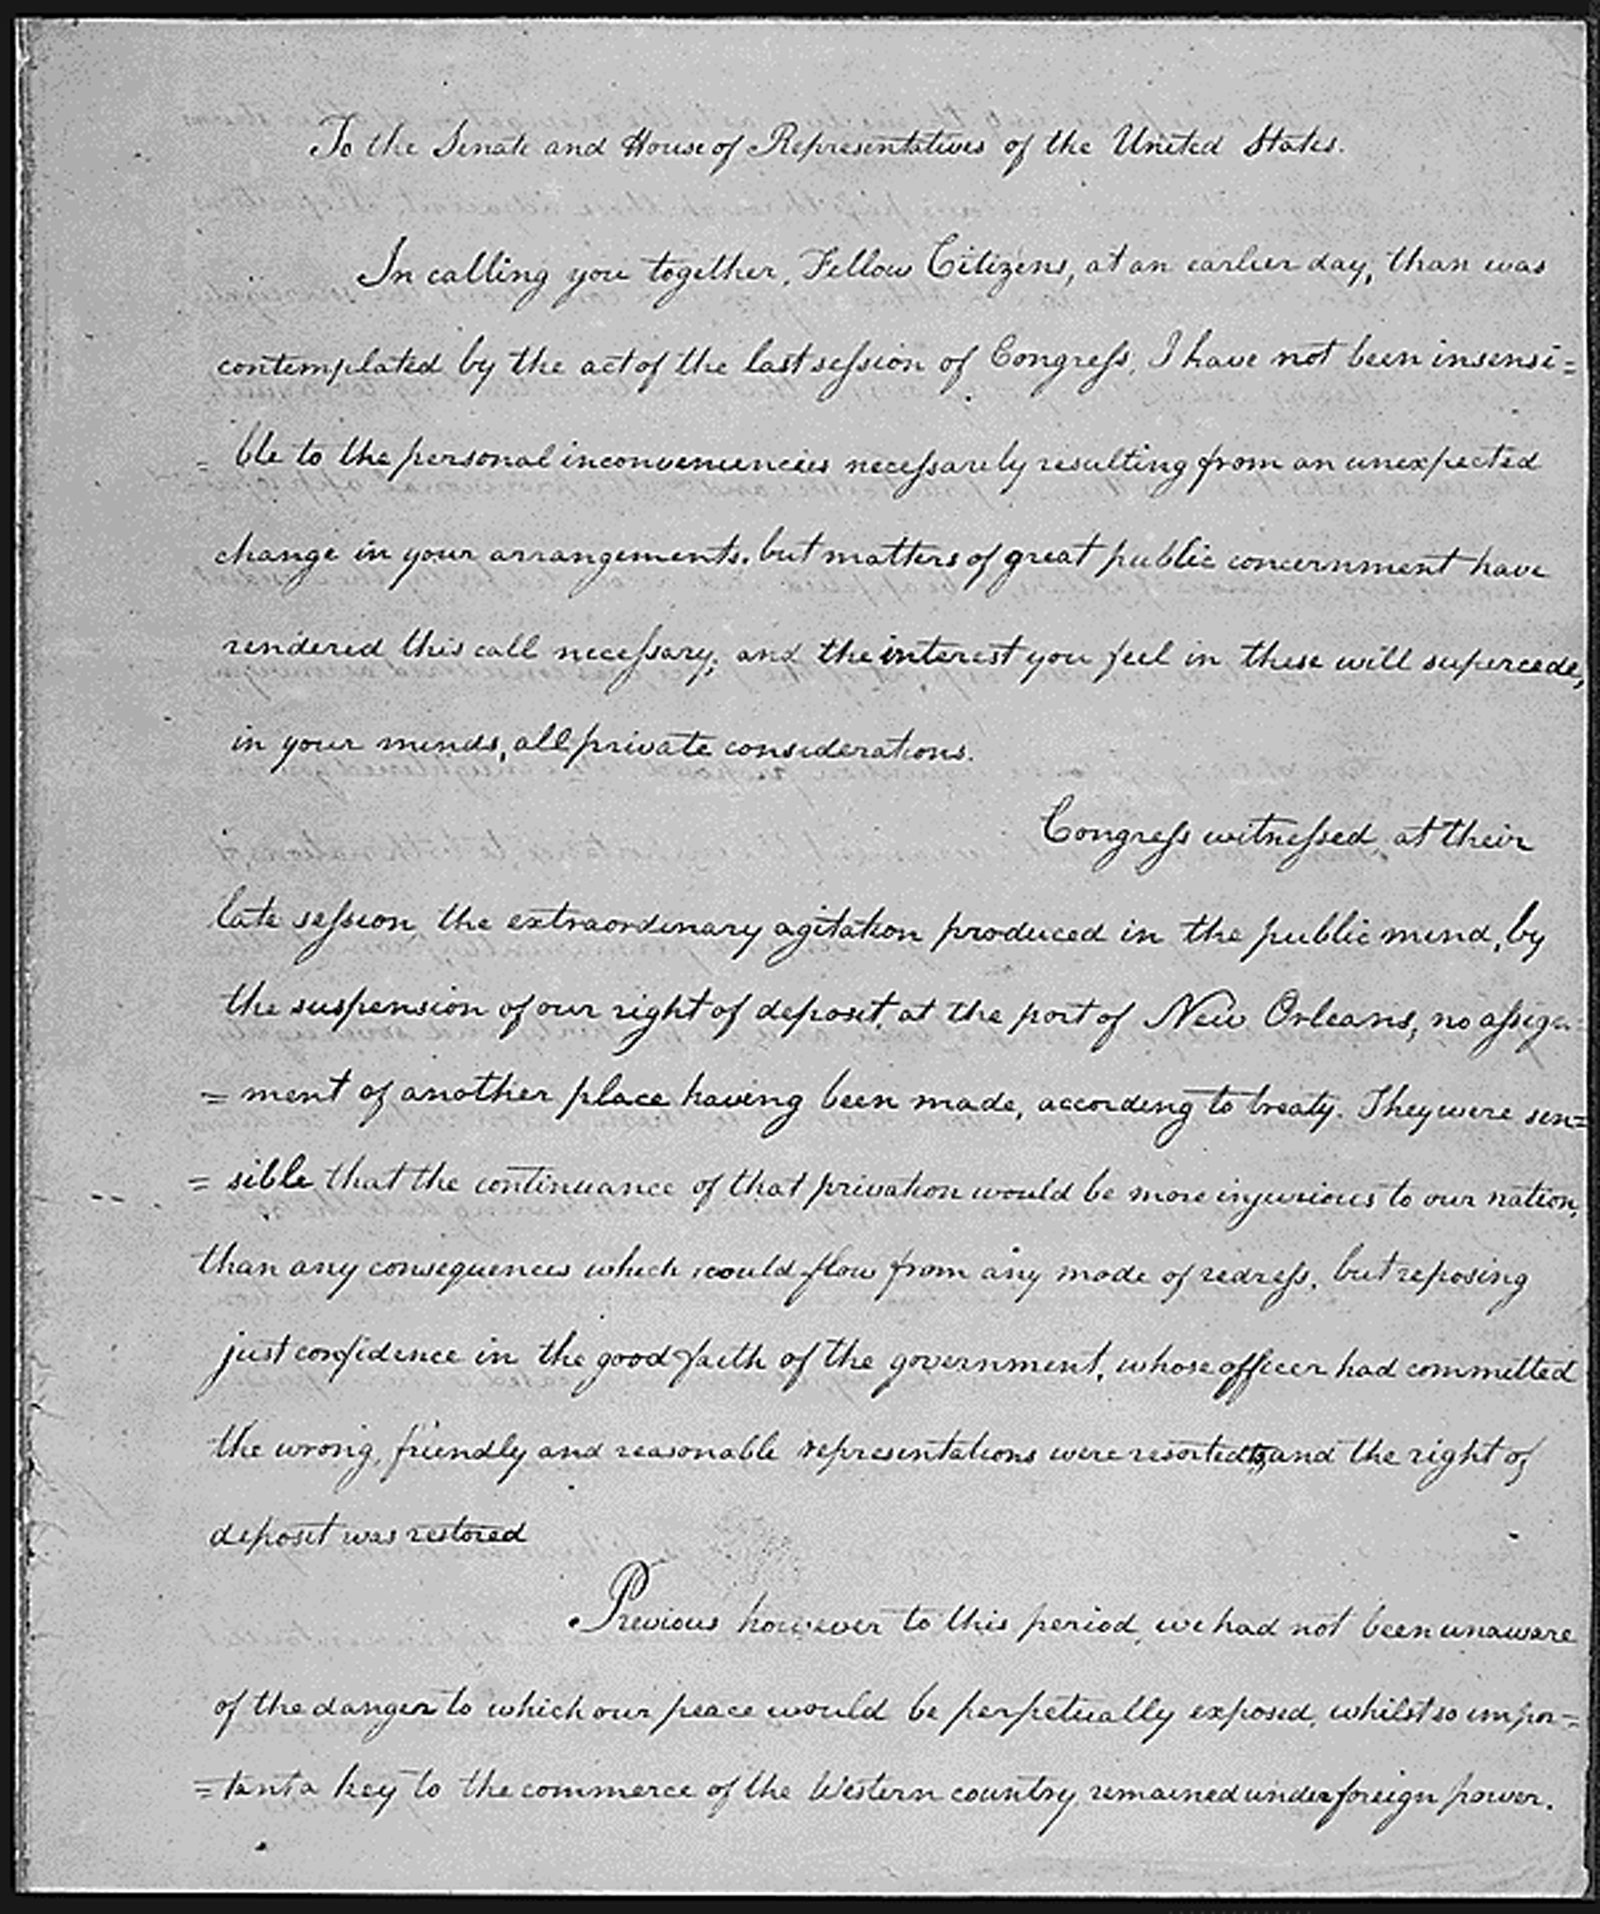 To the Senate and House of Representatives of the United States.
In calling you together, Fellow Citizens, at an earlier day, than was
contemplated by the act of the last session of Congress, I have not been insensi=
= ble to the personal inconveniencies necessarely resulting from an unexpected
change in your arrangements. but matters of great public concernment have
rendered this call necessary, and the interest you feel in these will supercede,
in your minds, all private considerations.
Congress witnessed, at their
late session, the extraordinary agitation produced in the public mind, by
the suspension of our right of deposit, at the port of New Orleans, no assign=
= ment of another place having been made, according to treaty. They were sen=
= sible that the continuance of that privation would be more injurious to our nation,
than any consequences which could flow from any mode of redress. but reposing
just confidence in the good faith of the government, whose officer had committed
the wrong, friendly and reasonable representations were resorted to, and the right of
deposit was restored
Previous however to this period, we had not been unaware
of the danger to which our peace would be perpetually exposed, whilst so impor=
= tant a key to the commerce of the Western country remained under foreign power.